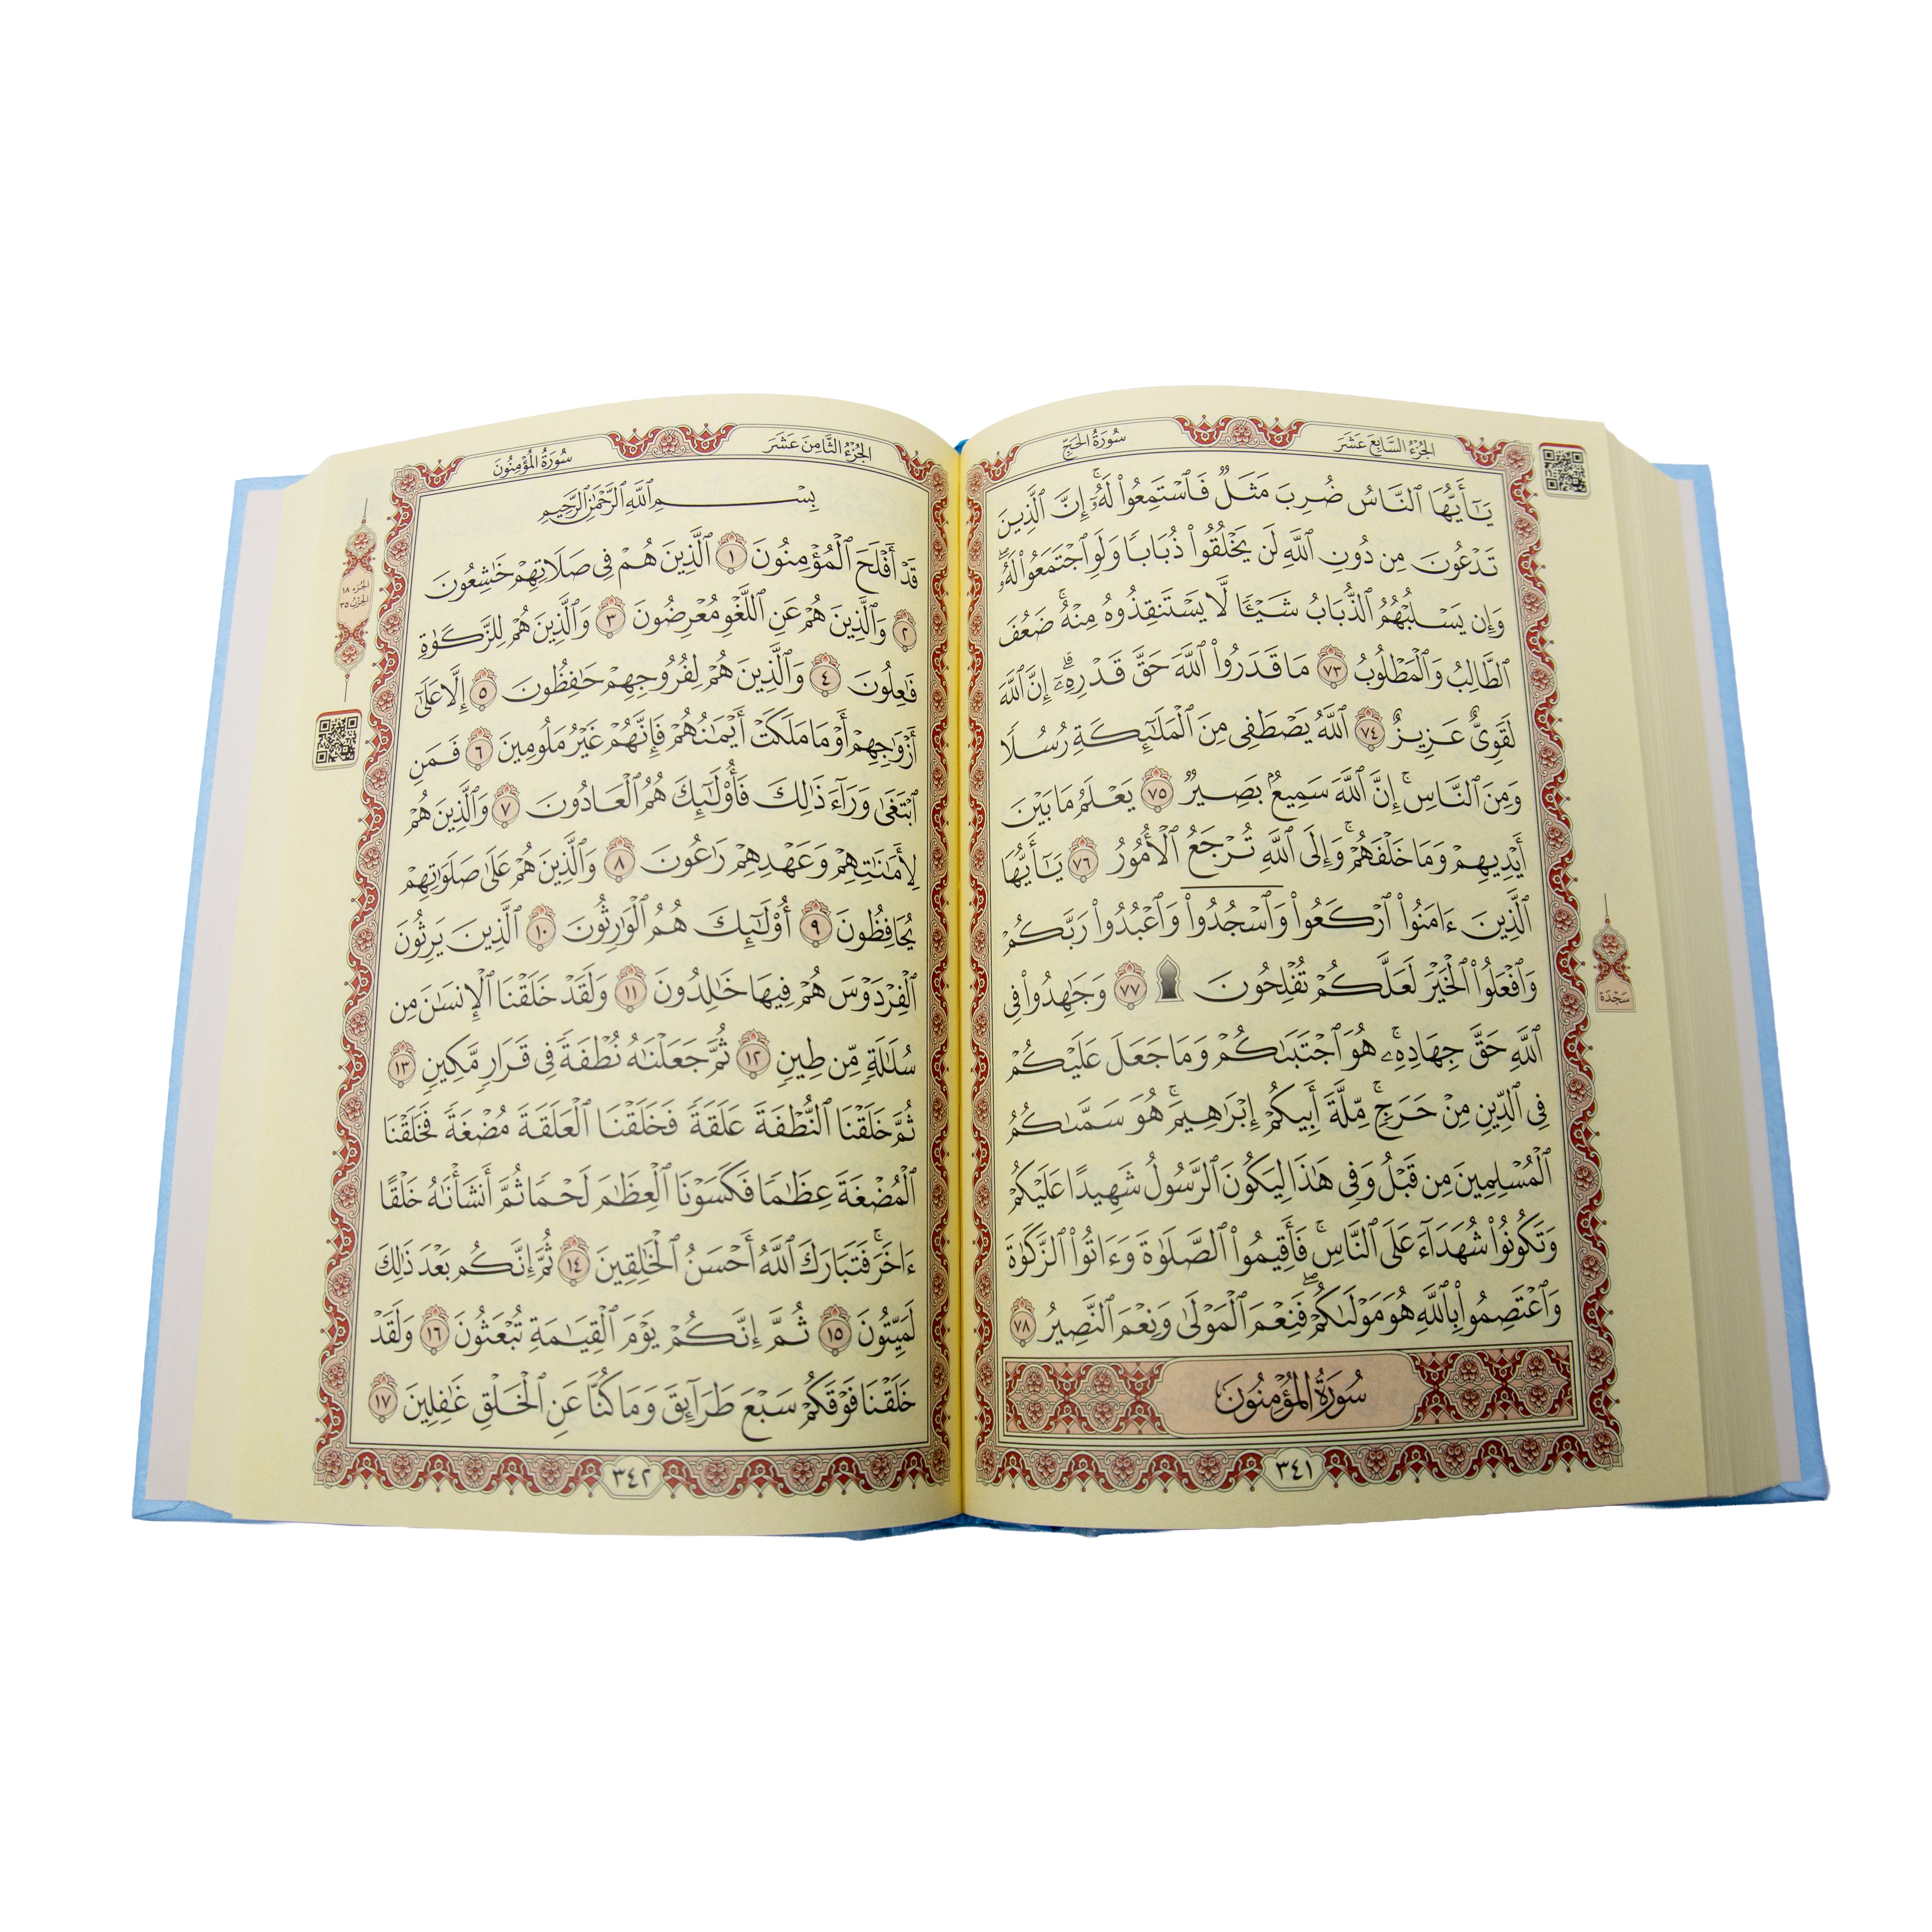 الجُزْءُ السَّابِعَ عَشَرَ
سُورَةُ الحَجِّ
يَـٰٓأَيُّهَا ٱلنَّاسُ ضُرِبَ مَثَلٌ فَٱسْتَمِعُوا۟ لَهُۥٓ ۚ إِنَّ ٱلَّذِينَ
تَدْعُونَ مِن دُونِ ٱللَّهِ لَن يَخْلُقُوا۟ ذُبَابًا وَلَوِ ٱجْتَمَعُوا۟ لَهُۥ ۖ
وَإِن يَسْلُبْهُمُ ٱلذُّبَابُ شَيْـًٔا لَّا يَسْتَنقِذُوهُ مِنْهُ ۚ ضَعُفَ
ٱلطَّالِبُ وَٱلْمَطْلُوبُ ٧٣ مَا قَدَرُوا۟ ٱللَّهَ حَقَّ قَدْرِهِۦٓ ۗ إِنَّ ٱللَّهَ
لَقَوِىٌّ عَزِيزٌ ٧٤ ٱللَّهُ يَصْطَفِى مِنَ ٱلْمَلَـٰٓئِكَةِ رُسُلًا
وَمِنَ ٱلنَّاسِ ۚ إِنَّ ٱللَّهَ سَمِيعٌۢ بَصِيرٌ ٧٥ يَعْلَمُ مَا بَيْنَ
أَيْدِيهِمْ وَمَا خَلْفَهُمْ ۗ وَإِلَى ٱللَّهِ تُرْجَعُ ٱلْأُمُورُ ٧٦ يَـٰٓأَيُّهَا
ٱلَّذِينَ ءَامَنُوا۟ ٱرْكَعُوا۟ وَٱسْجُدُوا۟ وَٱعْبُدُوا۟ رَبَّكُمْ
وَٱفْعَلُوا۟ ٱلْخَيْرَ لَعَلَّكُمْ تُفْلِحُونَ ۩ ٧٧ وَجَـٰهِدُوا۟ فِى
ٱللَّهِ حَقَّ جِهَادِهِۦ ۚ هُوَ ٱجْتَبَىٰكُمْ وَمَا جَعَلَ عَلَيْكُمْ
فِى ٱلدِّينِ مِنْ حَرَجٍ ۚ مِّلَّةَ أَبِيكُمْ إِبْرَٰهِيمَ ۚ هُوَ سَمَّىٰكُمُ
ٱلْمُسْلِمِينَ مِن قَبْلُ وَفِى هَـٰذَا لِيَكُونَ ٱلرَّسُولُ شَهِيدًا عَلَيْكُمْ
وَتَكُونُوا۟ شُهَدَآءَ عَلَى ٱلنَّاسِ ۚ فَأَقِيمُوا۟ ٱلصَّلَوٰةَ وَءَاتُوا۟ ٱلزَّكَوٰةَ
وَٱعْتَصِمُوا۟ بِٱللَّهِ هُوَ مَوْلَىٰكُمْ ۖ فَنِعْمَ ٱلْمَوْلَىٰ وَنِعْمَ ٱلنَّصِيرُ ٧٨
سُورَةُ المُؤْمِنُونَ
٣٤١
سَجْدَة
الجُزْءُ الثَّامِنَ عَشَرَ
سُورَةُ المُؤْمِنُونَ
بِسْمِ ٱللَّهِ ٱلرَّحْمَـٰنِ ٱلرَّحِيمِ
قَدْ أَفْلَحَ ٱلْمُؤْمِنُونَ ١ ٱلَّذِينَ هُمْ فِى صَلَاتِهِمْ خَـٰشِعُونَ
٢ وَٱلَّذِينَ هُمْ عَنِ ٱللَّغْوِ مُعْرِضُونَ ٣ وَٱلَّذِينَ هُمْ لِلزَّكَوٰةِ
فَـٰعِلُونَ ٤ وَٱلَّذِينَ هُمْ لِفُرُوجِهِمْ حَـٰفِظُونَ ٥ إِلَّا عَلَىٰٓ
أَزْوَٰجِهِمْ أَوْ مَا مَلَكَتْ أَيْمَـٰنُهُمْ فَإِنَّهُمْ غَيْرُ مَلُومِينَ ٦ فَمَنِ
ٱبْتَغَىٰ وَرَآءَ ذَٰلِكَ فَأُو۟لَـٰٓئِكَ هُمُ ٱلْعَادُونَ ٧ وَٱلَّذِينَ هُمْ
لِأَمَـٰنَـٰتِهِمْ وَعَهْدِهِمْ رَٰعُونَ ٨ وَٱلَّذِينَ هُمْ عَلَىٰ صَلَوَٰتِهِمْ
يُحَافِظُونَ ٩ أُو۟لَـٰٓئِكَ هُمُ ٱلْوَٰرِثُونَ ١٠ ٱلَّذِينَ يَرِثُونَ
ٱلْفِرْدَوْسَ هُمْ فِيهَا خَـٰلِدُونَ ١١ وَلَقَدْ خَلَقْنَا ٱلْإِنسَـٰنَ مِن
سُلَـٰلَةٍ مِّن طِينٍ ١٢ ثُمَّ جَعَلْنَـٰهُ نُطْفَةً فِى قَرَارٍ مَّكِينٍ ١٣
ثُمَّ خَلَقْنَا ٱلنُّطْفَةَ عَلَقَةً فَخَلَقْنَا ٱلْعَلَقَةَ مُضْغَةً فَخَلَقْنَا
ٱلْمُضْغَةَ عِظَـٰمًا فَكَسَوْنَا ٱلْعِظَـٰمَ لَحْمًا ثُمَّ أَنشَأْنَـٰهُ خَلْقًا
ءَاخَرَ ۚ فَتَبَارَكَ ٱللَّهُ أَحْسَنُ ٱلْخَـٰلِقِينَ ١٤ ثُمَّ إِنَّكُم بَعْدَ ذَٰلِكَ
لَمَيِّتُونَ ١٥ ثُمَّ إِنَّكُمْ يَوْمَ ٱلْقِيَـٰمَةِ تُبْعَثُونَ ١٦ وَلَقَدْ
خَلَقْنَا فَوْقَكُمْ سَبْعَ طَرَآئِقَ وَمَا كُنَّا عَنِ ٱلْخَلْقِ غَـٰفِلِينَ ١٧
٣٤٢
الجزء ١٨
الحزب ٣٥